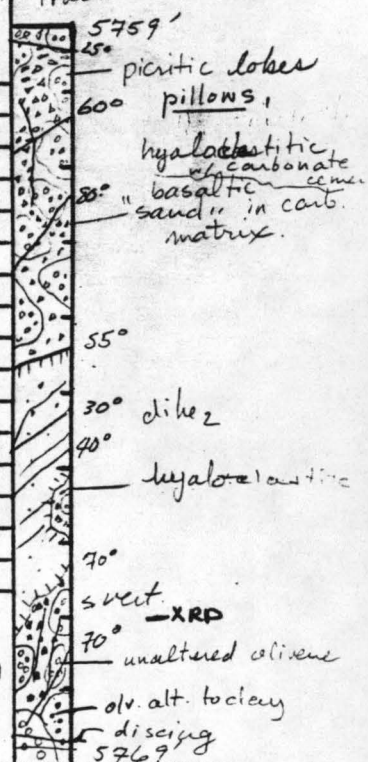 5759'
25°
picritic lobes
60° pillows,
hyaloclastitic
w/ carbonate
80° basaltic cemen
"sand" in carb.
matrix.
55°
30° dike?
40°
hyaloclastite
70°
s vert.
-XRD
70°
unaltered olivene
olv. alt. to clay
discing
5769'